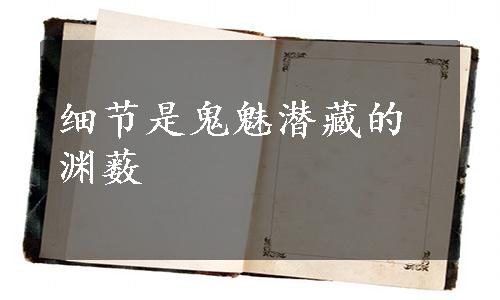 细节是鬼魅潜藏的
渊薮